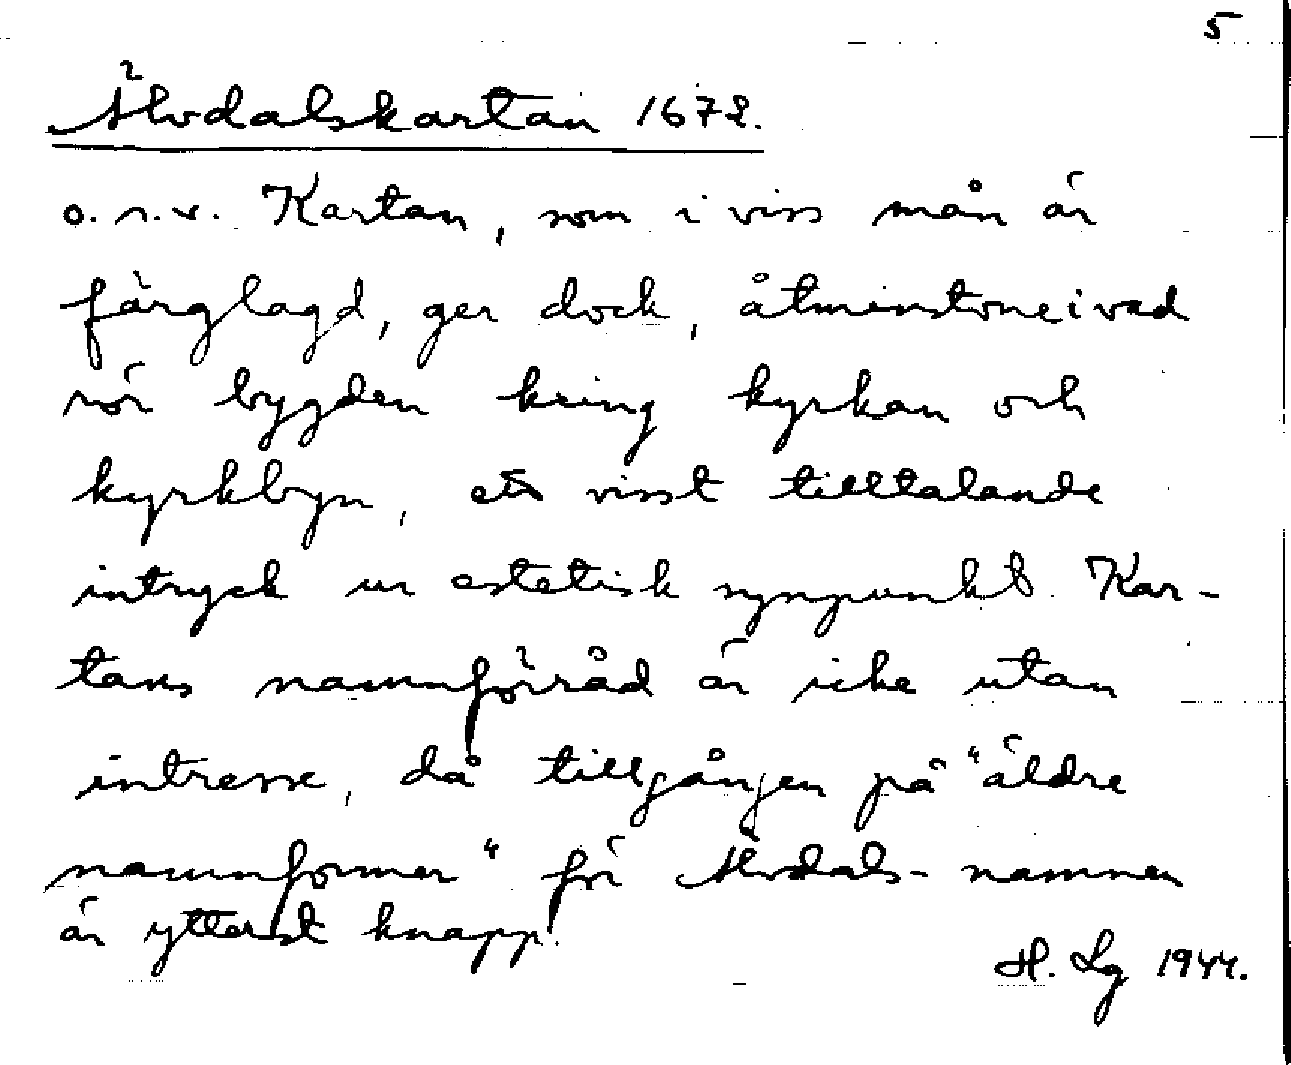 5
Älvdalskartan 1672.
o. s. v. Kartan, som i viss mån är
färglagd, ger dock, åtminstone i vad
rör bygden kring kyrkan och
kyrkbyn, ett visst tilltalande
intryck ur estetisk synpunkt. Kar-
tans namnförråd är icke utan
intresse, då tillgången på "äldre
namnformer" för Älvdals-namnen
är ytterst knapp.
H. Lg 1944.